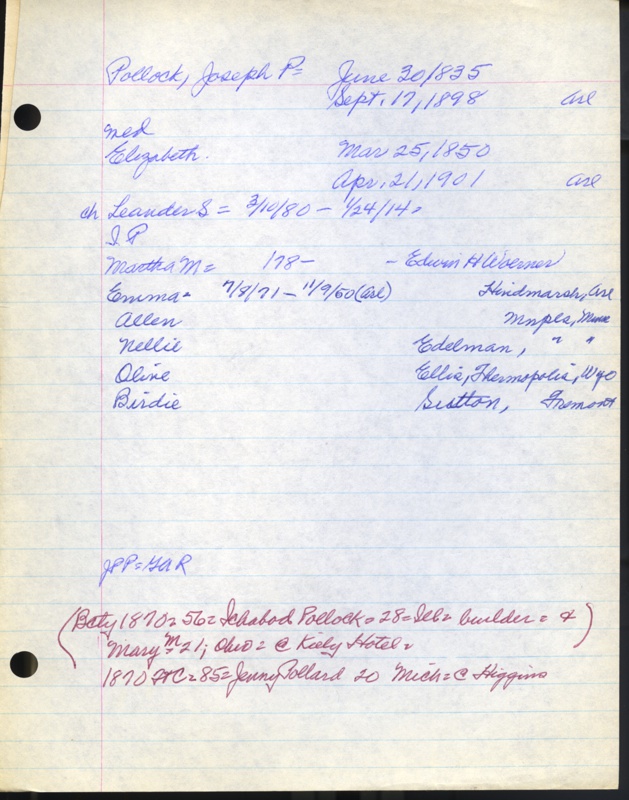 Pollock, Joseph P= June 30/835
Sept. 17, 1898 Arl
med
Elizabeth. Mar 25, 1850
Apr. 21, 1901 Arl
ch Leander S = 3/10/80 - 1/24/14 -
I P
Martha M = 178 - - Edwin H Woerner
Emma - 7/8/71 - 11/9/50 (Arl) Hindmarsh, Arl
Allen Mnpls, Minn
Nellie Edelman, " "
Olive Ellis, Thermopolis, Wyo
Birdie Sutton, Fremont
JPP = GAR
(Bcty 1870 = 56 = Ichabod Pollock = 28 = Ill = builder = &
Mary M = 21; Ohio = C Kiely Hotel =
1870 HC = 85 = Jenny Pollard 20 Mich = C Higgins